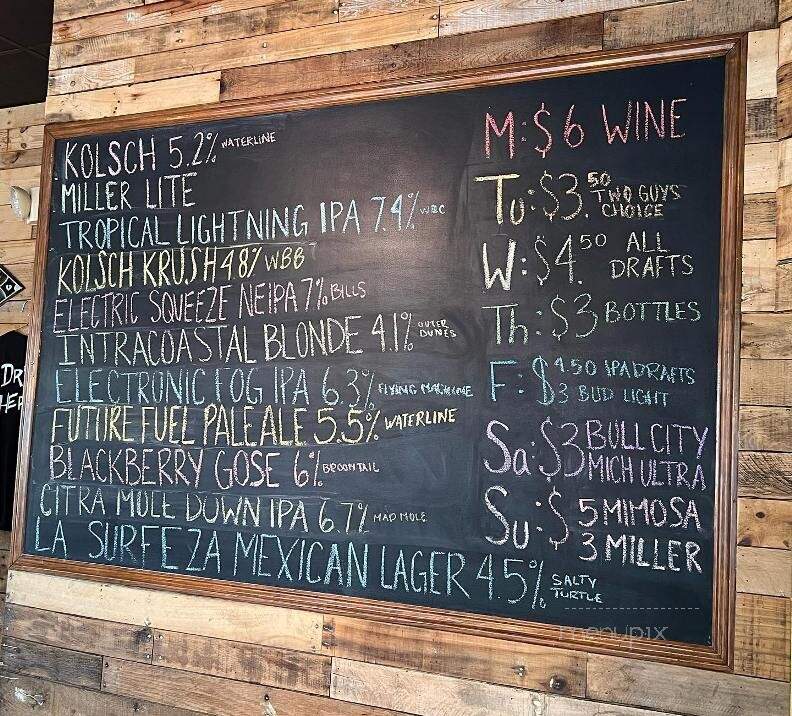 KOLSCH 5.2% WATERLINE
MILLER LITE
TROPICAL LIGHTNING IPA 7.4% WBC
KOLSCH KRUSH 4.8% WBB
ELECTRIC SQUEEZE NEIPA 7% BILLS
INTRACOASTAL BLONDE 4.1% OUTER DUNES
ELECTRONIC FOG IPA 6.3% FLYING MACHINE
FUTURE FUEL PALE ALE 5.5% WATERLINE
BLACKBERRY GOSE 6% BROOMTAIL
CITRA MOLE DOWN IPA 6.7% MAD MOLE
LA SURFEZA MEXICAN LAGER 4.5% SALTY TURTLE
M: $6 WINE
Tu: $3.50 TWO GUYS CHOICE
W: $4.50 ALL DRAFTS
Th: $3 BOTTLES
F: $4.50 IPA DRAFTS
3 BUD LIGHT
Sa: $3 BULL CITY
MICH ULTRA
Su: $5 MIMOSA
3 MILLER
menupix
DR
HER